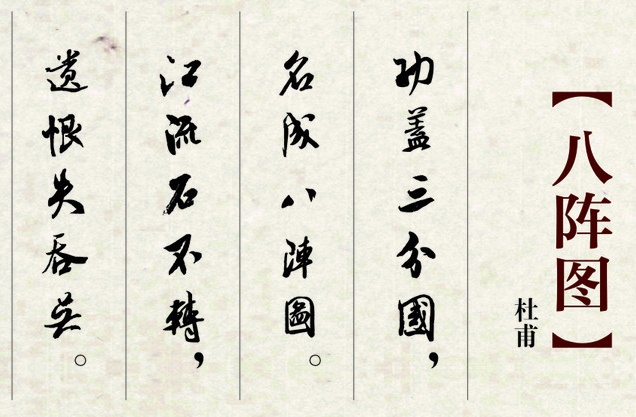 【八阵图】
杜甫
功蓋三分國，
名成八陣圖。
江流石不轉，
遗恨失吞吴。